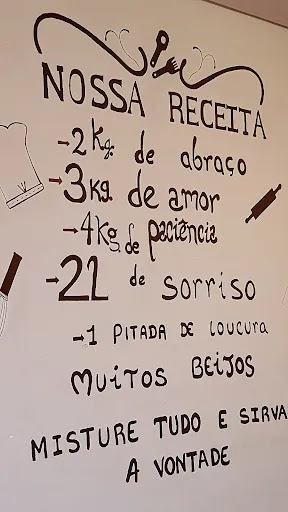 NOSSA RECEITA
→2kg. de abraço
→3kg de amor
→4kg de paciência
→2L de sorriso
→1 PITADA DE LOUCURA
MUITOS BEIJOS
MISTURE TUDO E SIRVA
A VONTADE